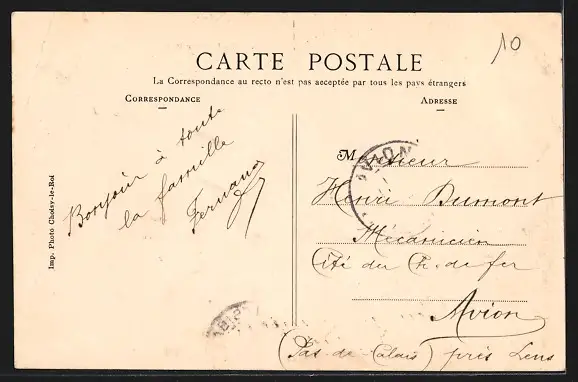 10
CARTE POSTALE
La Correspondance au recto n'est pas acceptée par tous les pays étrangers
CORRESPONDANCE
ADRESSE
Bonjour à toute
la famille
Fernand
Imp. Photo Choisy-le-Roi
AVION
Monsieur
Henri Dumont
Mécanicien
Cité du Ch. de fer
Avion
(Pas-de-Calais) près Lens